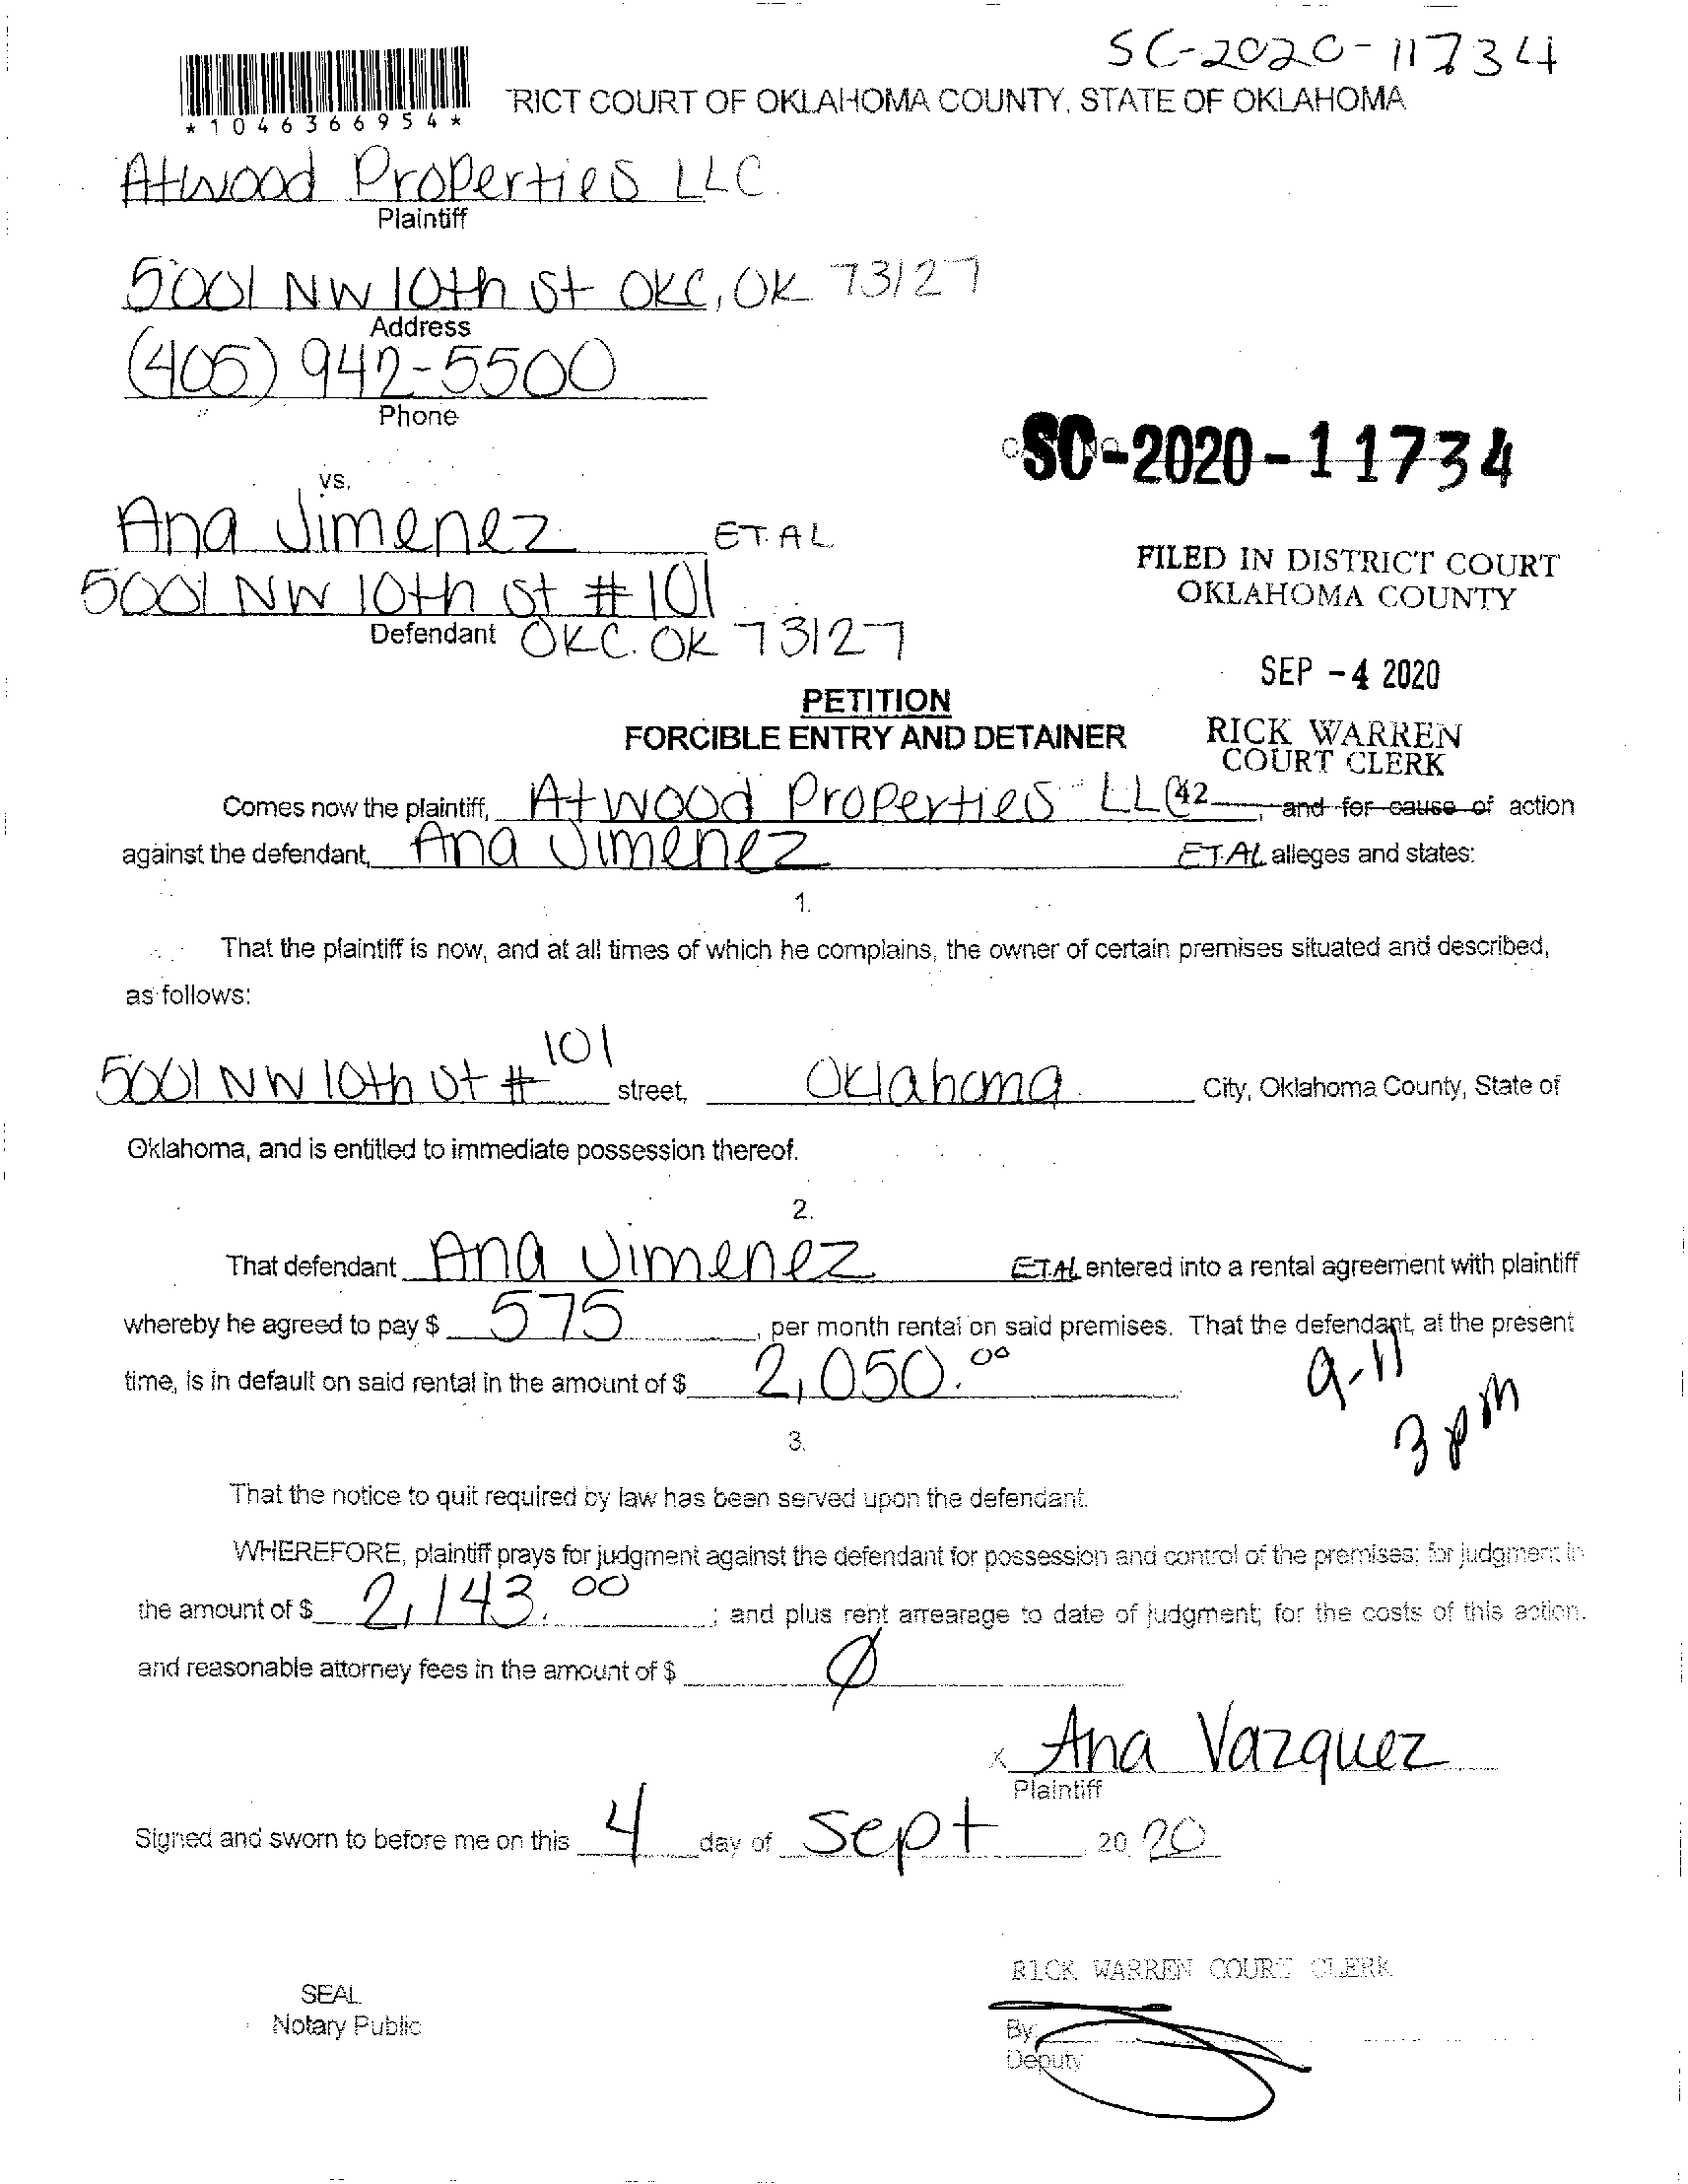 SC-2020-11734
*1046366954*
RICT COURT OF OKLAHOMA COUNTY, STATE OF OKLAHOMA
Atwood Properties LLC.
Plaintiff
5001 NW 10th St OKC, OK 73127
Address
(405) 942-5500
Phone
SC-2020-11734
vs.
Ana Jimenez ET.AL
5001 NW 10th St #101
Defendant OKC. OK 73127
FILED IN DISTRICT COURT
OKLAHOMA COUNTY
SEP -4 2020
RICK WARREN
COURT CLERK
42
PETITION
FORCIBLE ENTRY AND DETAINER
Comes now the plaintiff, Atwood Properties LLC, and for cause of action
against the defendant, Ana Jimenez ET.AL alleges and states:
1.
That the plaintiff is now, and at all times of which he complains, the owner of certain premises situated and described,
as follows:
5001 NW 10th St #101 street, Oklahoma City, Oklahoma County, State of
Oklahoma, and is entitled to immediate possession thereof.
2.
That defendant Ana Jimenez ET.AL entered into a rental agreement with plaintiff
whereby he agreed to pay $ 575, per month rental on said premises. That the defendant, at the present
time, is in default on said rental in the amount of $ 2,050.00
9-11
3pm
3.
That the notice to quit required by law has been served upon the defendant.
WHEREFORE, plaintiff prays for judgment against the defendant for possession and control of the premises; for judgment in
the amount of $ 2,143.00; and plus rent arrearage to date of judgment; for the costs of this action.
and reasonable attorney fees in the amount of $ Ø
x Ana Vazquez
Plaintiff
Signed and sworn to before me on this 4 day of Sept 2020
RICK WARREN COURT CLERK
SEAL
Notary Public
By
Deputy